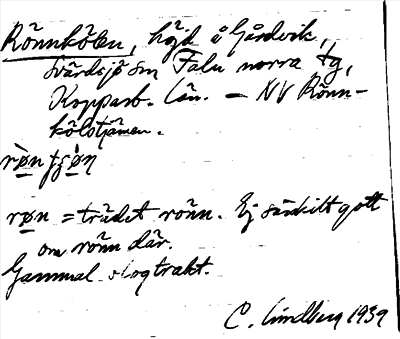 Rönnkölen, höjd å Gårdvik,
Svärdsjö sn Falu norra tg,
Kopparb. län. – NV Rönn-
kölstjärnen.
røn
røn = trädet rönn. Ej särskilt gott
om rönn där.
Gammal skogtrakt.
C. Lindberg 1939